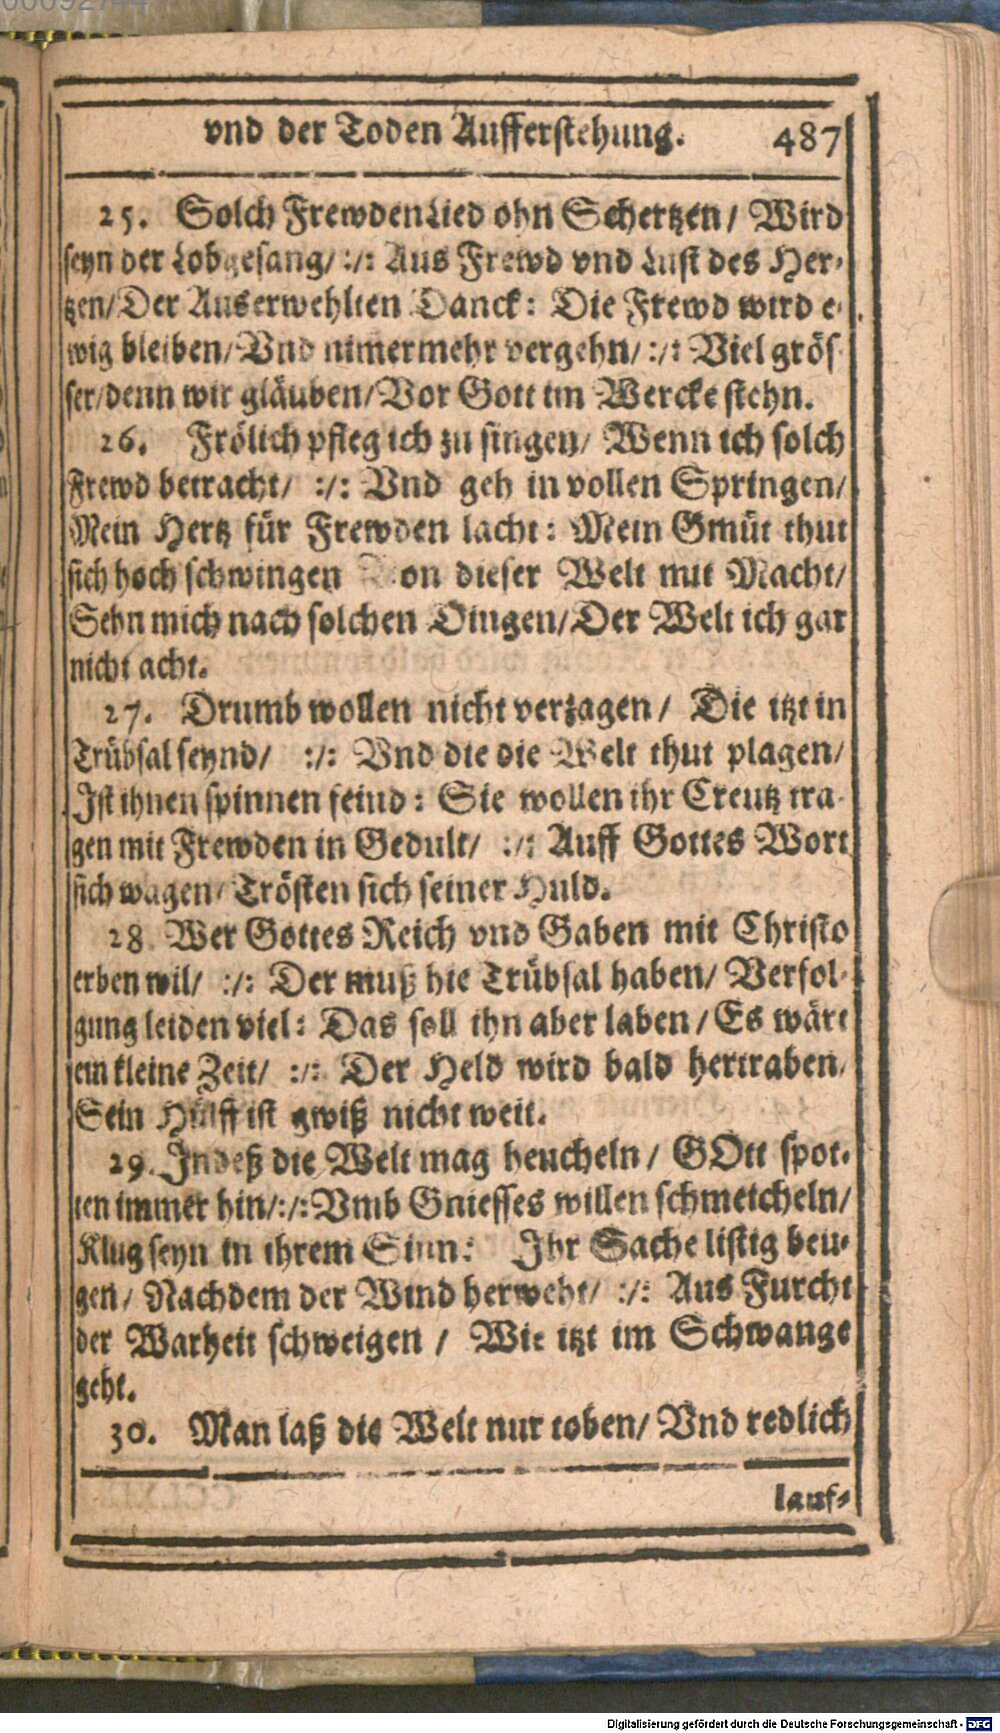 vnd der Toden Aufferstehung. 487
25. Solch FrewdenLied ohn Schertzen / Wird
seyn der Lobgesang / :/: Aus Frewd vnd Lust des Her-
tzen / Der Auserwehlten Danck: Die Frewd wird e-
wig bleiben / Vnd nimermehr vergehn / :/: Viel grös-
ser / denn wir gläuben / Vor Gott im Wercke stehn.
26. Frölich pfleg ich zu singen / Wenn ich solch
Frewd betracht / :/: Vnd geh in vollen Springen /
Mein Hertz für Frewden lacht: Mein Gmüt thut
sich hoch schwingen Von dieser Welt mit Macht /
Sehn mich nach solchen Dingen / Der Welt ich gar
nicht acht.
27. Drumb wollen nicht verzagen / Die itzt in
Trübsal seynd / :/: Vnd die die Welt thut plagen /
Ist ihnen spinnen feind: Sie wollen ihr Creutz tra-
gen mit Frewden in Gedult / :/: Auff Gottes Wort
sich wagen / Trösten sich seiner Huld.
28 Wer Gottes Reich vnd Gaben mit Christo
erben wil / :/: Der muß hie Trübsal haben / Verfol-
gung leiden viel: Das soll ihn aber laben / Es wärt
ein kleine Zeit / :/: Der Held wird bald hertraben /
Sein Hülff ist gwiß nicht weit.
29. Indeß die Welt mag heucheln / GOtt spot-
ten immer hin / :/: Vmb Gniesses willen schmeicheln /
Klug seyn in ihrem Sinn: Ihr Sache listig beu-
gen / Nachdem der Wind herweht / :/: Aus Furcht
der Warheit schweigen / Wie itzt im Schwange
geht.
30. Man laß die Welt nur toben / Vnd redlich
lauf-
Digitalisierung gefördert durch die Deutsche Forschungsgemeinschaft - DFG